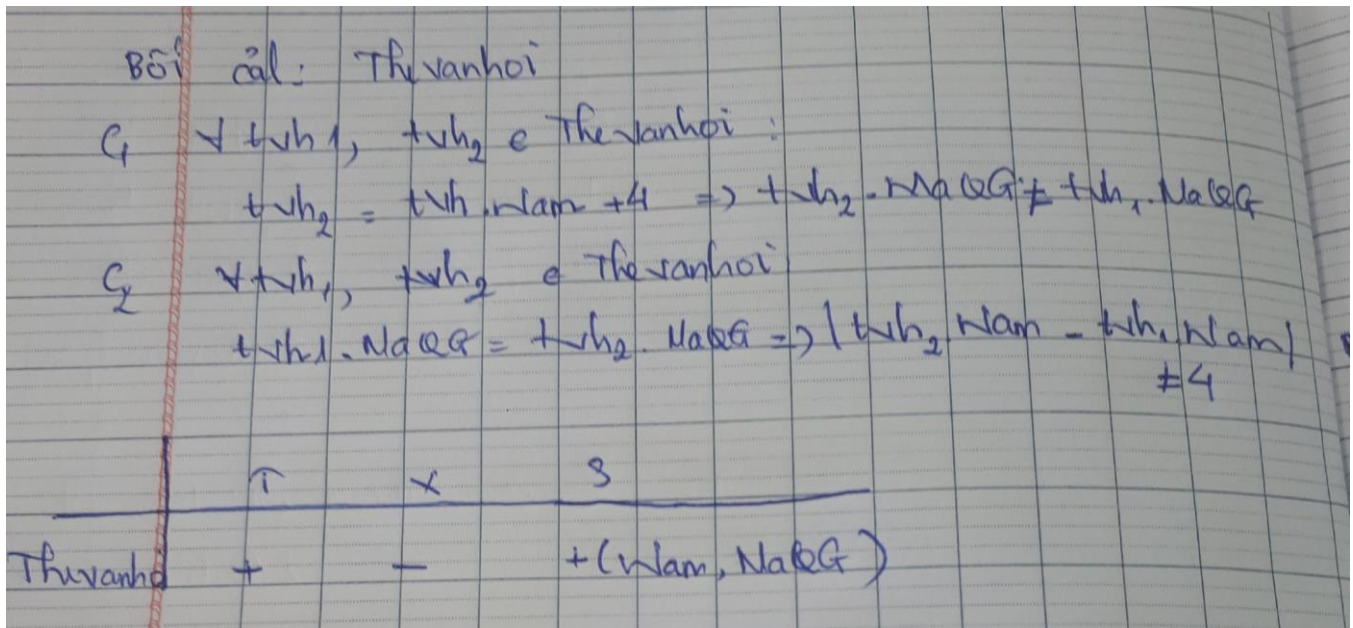 Bối cảnh: Thevanhoi
C1 ∀ tvh1, tvh2 ∈ Thevanhoi:
tvh2 = tvh.Nam +4 => tvh2.MaQG ≠ tvh1.MaQG
C2 ∀ tvh1, tvh2 ∈ Thevanhoi
tvh1.MaQG = tvh2.MaQG => |tvh2 Nam - tvh1 Nam|
≠4
T X S
Thevanhoi + - +(Nam, MaQG)